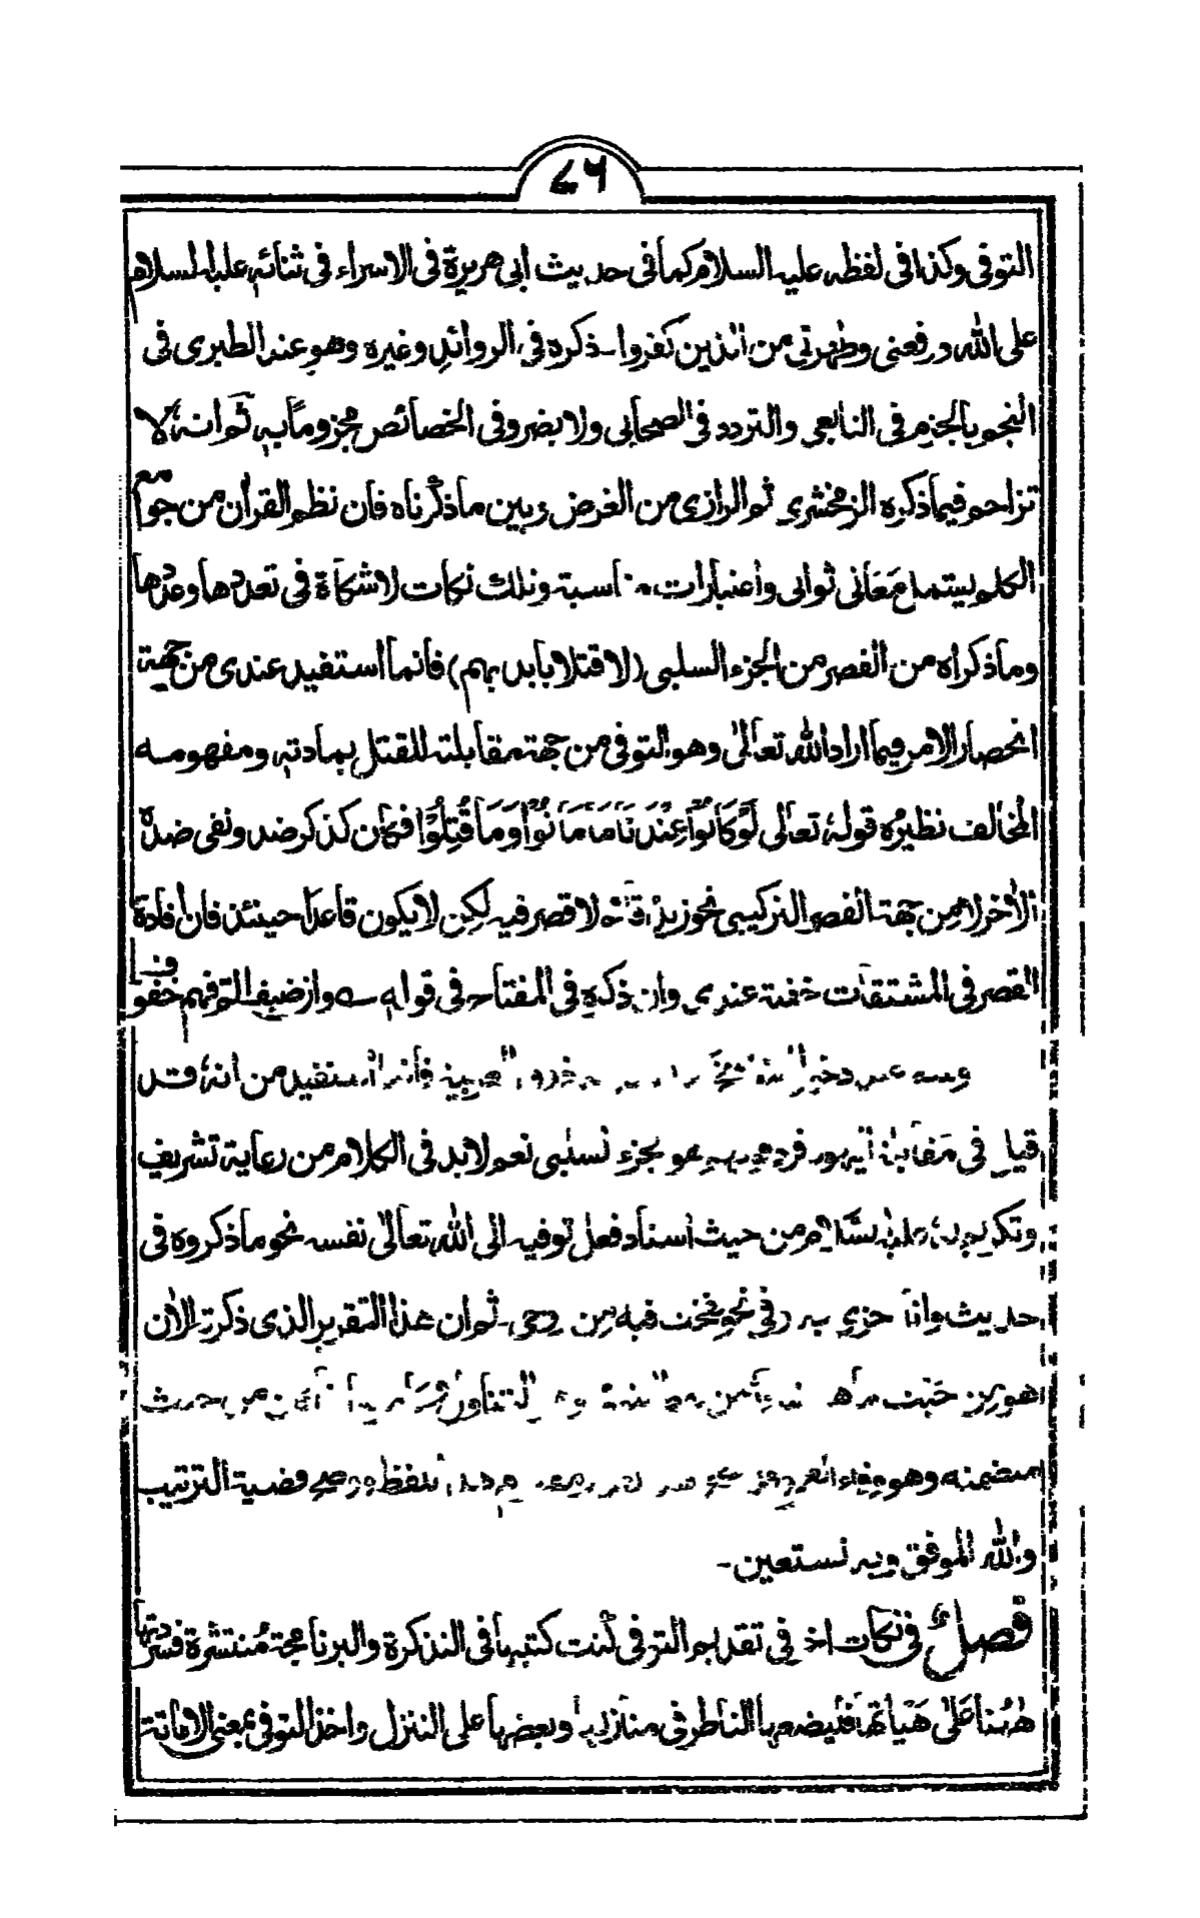 ٧٦
التوفى وكذا فى لفظه عليه السلام كما فى حديث ابى هريرة فى الاسراء فى ثنائه عليه السلام
على الله ورفعنى وطهرنى من الذين كفروا ـ ذكره فى الزوائد وغيره وهو عند الطبرى فى
النجم بالجزم فى التابعى والتردد فى الصحابى ولا يضر وفى الخصائص مجزوماً به ثم انه لا
تزاحم فيما ذكره الزمخشرى ثم الرازى من الغرض وبين ما ذكرناه فان نظم القران من جوامع
الكلم يستماع معانى ثوانى واعتبارات مناسبة وتلك نكات لا شكاة فى تعددها وعدها
وما ذكراه من القصر من الجزء السلبى (لا قتلا بايديهم) فانما استفيد عندى من جهة
انحصار الامر فيما اراد الله تعالى وهو التوفى من جهة مقابلته للقتل بمادته ومفهومه
المخالف نظيره قوله تعالى لَوْ كَانُوْا عِنْدَنَا مَا مَاتُوْا وَمَا قُتِلُوْا فكان كذكر ضد ونفى ضده
الاخر لا من جهة القصر التركيبى نحو زيد قائم لا قصر فيه لكن لا يكون قاعدا حينئذ فان افادة
القصر فى المشتقات خفية عندى وان ذكره فى المفتاح فى قوله ے وان ضيف الم فهم خفوف
فانما استفيد من انه قد
قيل فى مقابلة بجزء سلبى نعم لا بد فى الكلام من رعاية تشريف
وتكريم من حيث اسناد فعل توفيه الى الله تعالى نفسه نحو ما ذكروه فى
حديث وانا اجزى به وفى نحو نفخت فيه من روحى ـ ثم ان هذا التقرير الذى ذكرته الان
هو من حيث من حيث
متضمنه وهو اللفظ قضية الترتيب
والله الموفق وبه نستعين ـ
فصل فى نكات اخر فى تقديم التوفى كنت كتبتها فى التذكرة والبرنامجة منتشرة فسردتها
هٰهنا على هيأتها فليضعها الناظر فى منازلها وبعضها على التنزل واخذ التوفى بمعنى الاماتة